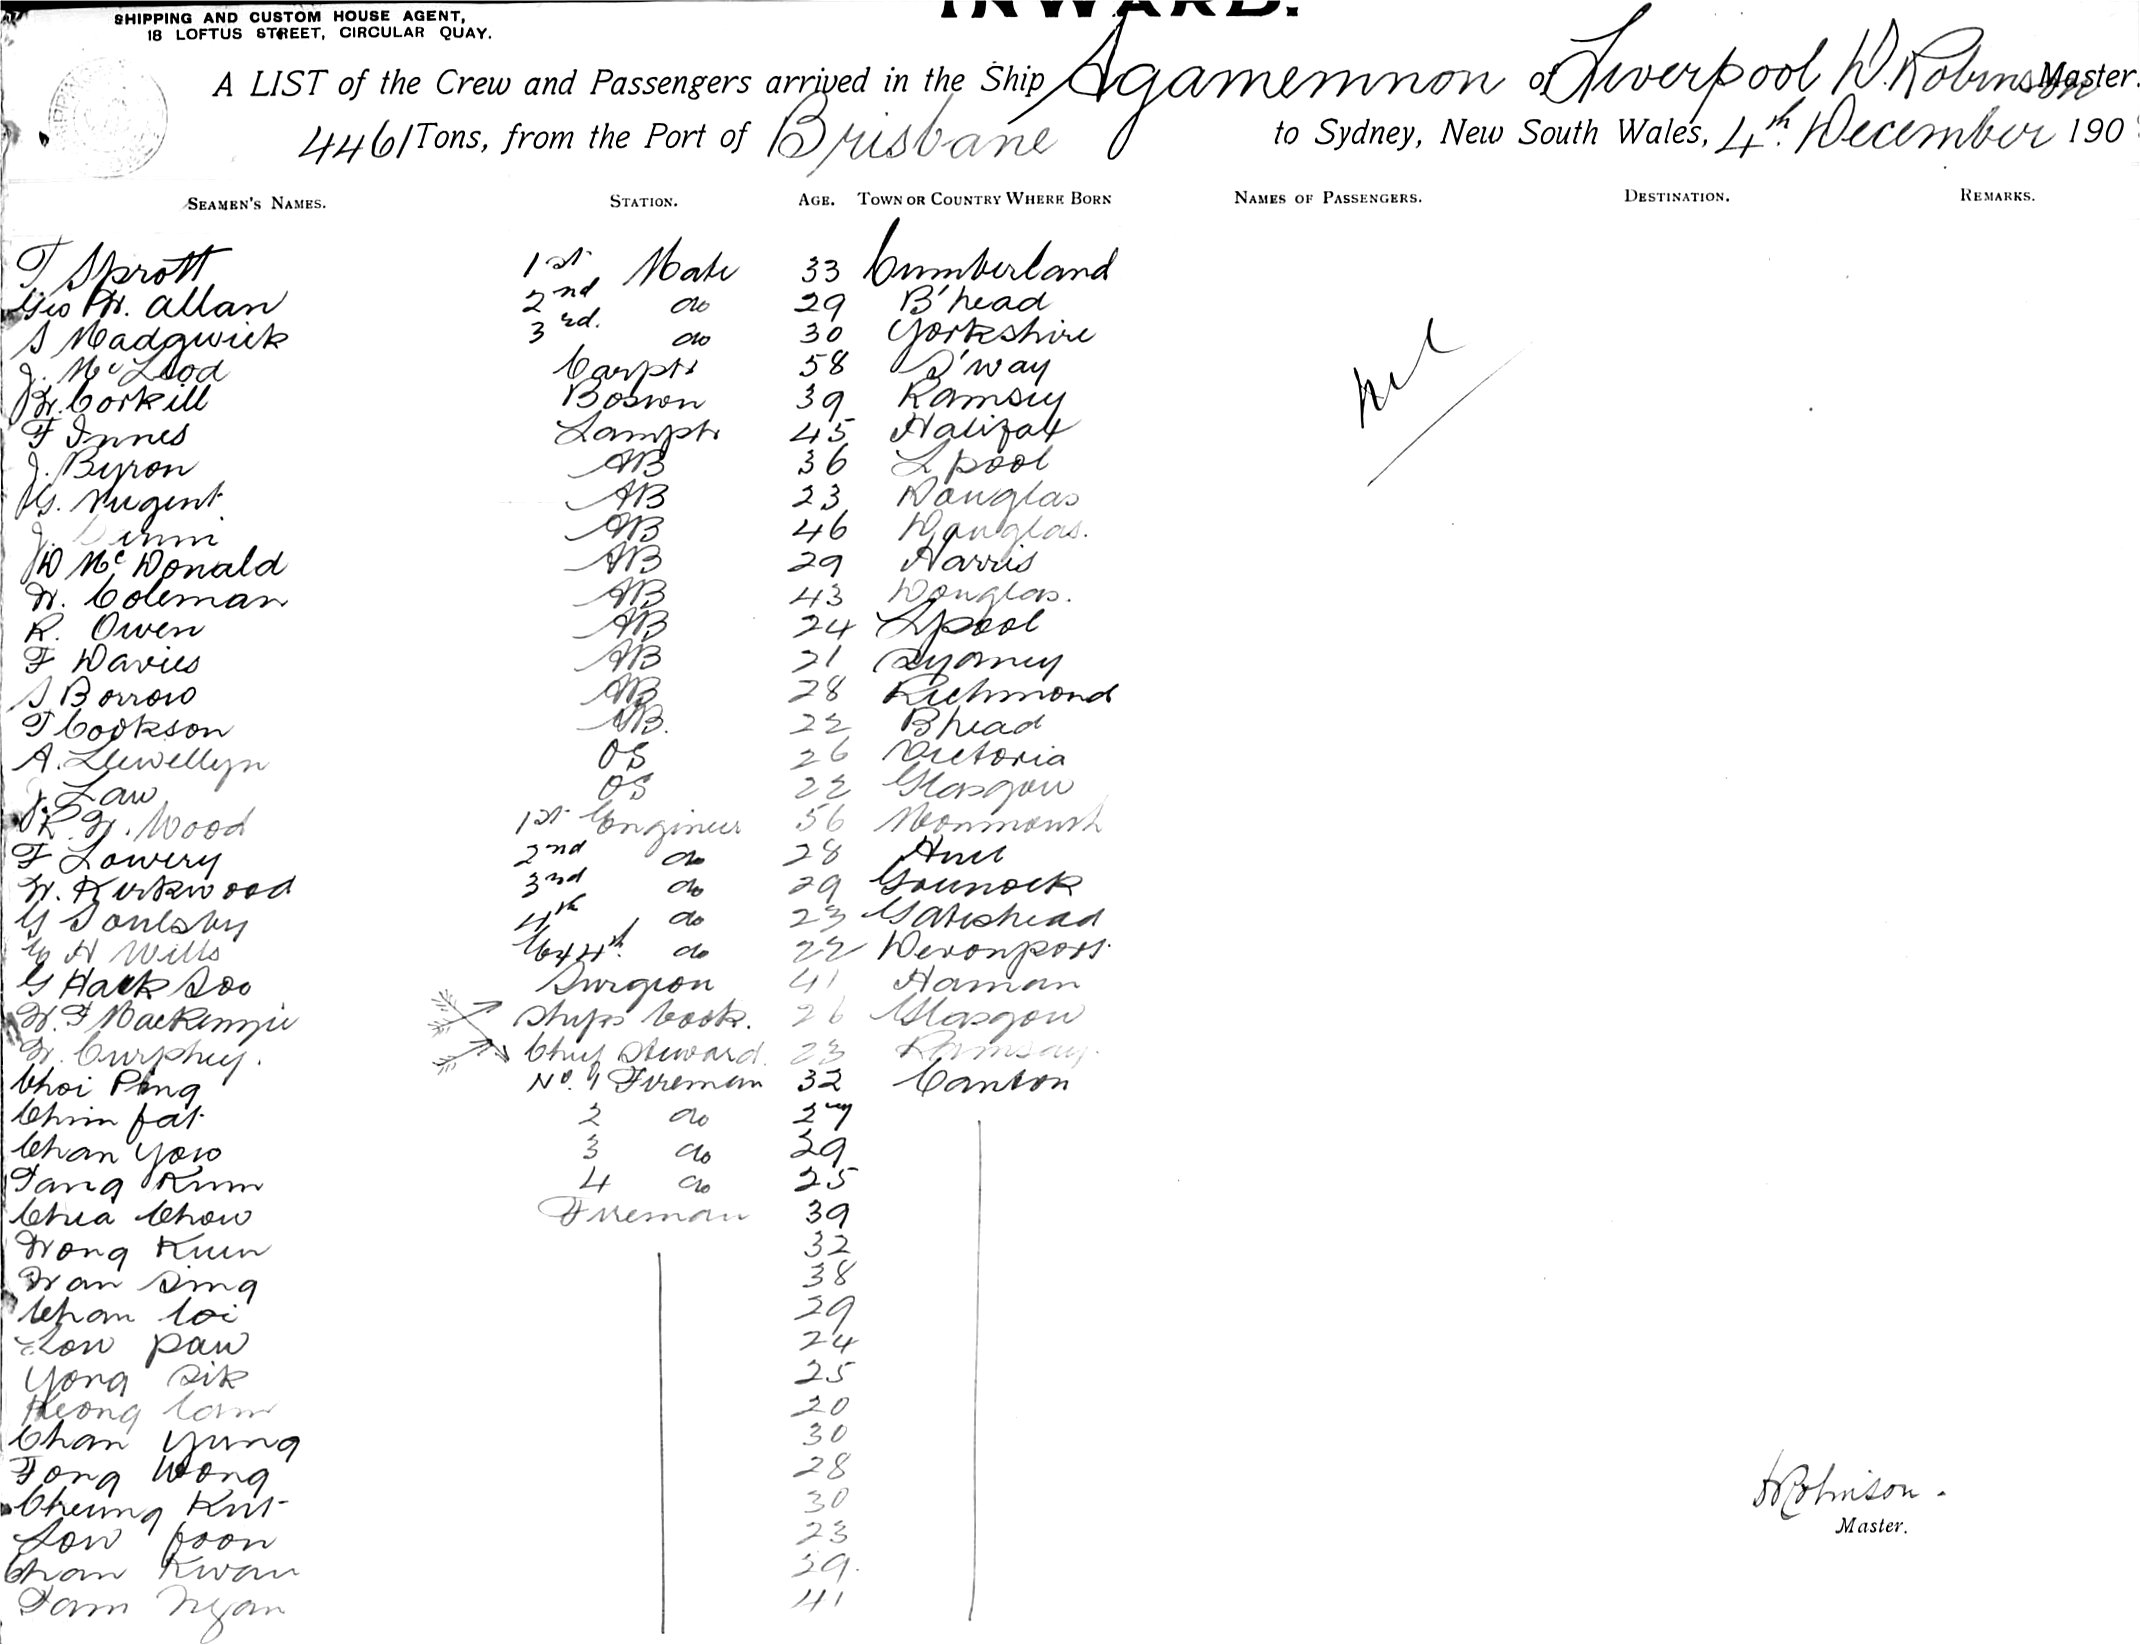 INWARD.
SHIPPING AND CUSTOM HOUSE AGENT,
18 LOFTUS STREET, CIRCULAR QUAY.
A LIST of the Crew and Passengers arrived in the Ship Agamemnon of Liverpool D. Robinson Master.
4461 Tons, from the Port of Brisbane to Sydney, New South Wales, 4th December 190
SEAMEN'S NAMES. STATION. AGE. TOWN OR COUNTRY WHERE BORN NAMES OF PASSENGERS. DESTINATION. REMARKS.
T Sprott 1st Mate 33 Cumberland
Geo W. Allan 2nd do 29 B'head
S Madgwick 3rd. do 30 Yorkshire
J. McLeod Carptr 58 S'way
W. Corkill Boswn 39 Ramsey
F Innes Lamptr 45 Halifax
J. Byron AB 36 Lpool
G. Nugent AB 23 Douglas
J. AB 46 Douglas.
D McDonald AB 29 Harris
W. Coleman AB 43 Douglas.
R. Owen AB 24 Lpool
F Davies AB 21 Sydney
S Borrow AB 28 Richmond
T Cookson AB. 22 Bhead
A. Llewellyn OS 26 Victoria
J. Law OS 22 Glasgow
R. W. Wood 1st Engineer 56 Monmouth
F Lowery 2nd do 28 Hull
W. Kirkwood 3rd do 29 Gourock
G Soulsby 4th do 23 Gateshead
H Wills 4th. do 22 Devonport
G Hack Soo Surgeon 41
W. F MacKenzie Ships Cook. 26 Glasgow
W. Curphey. Chief Steward. 23 Ramsay.
Choi Ping No. 1 Fireman 32 Canton
Chim fat 2 do 27
Chan Yow 3 do 29
Tang Kum 4 do 25
Chea Chow Fireman 39
Wong Kum 32
Wan Sing 38
Chan Coi 29
Low Paw 24
Yong Sik 25
Keong Cam 20
Chan Yung 30
Fong Wong 28
Cheung Kut 30
Low foon 23
Chan Kwan 39.
Tam Ngan 41
Nil
D Robinson.
Master.